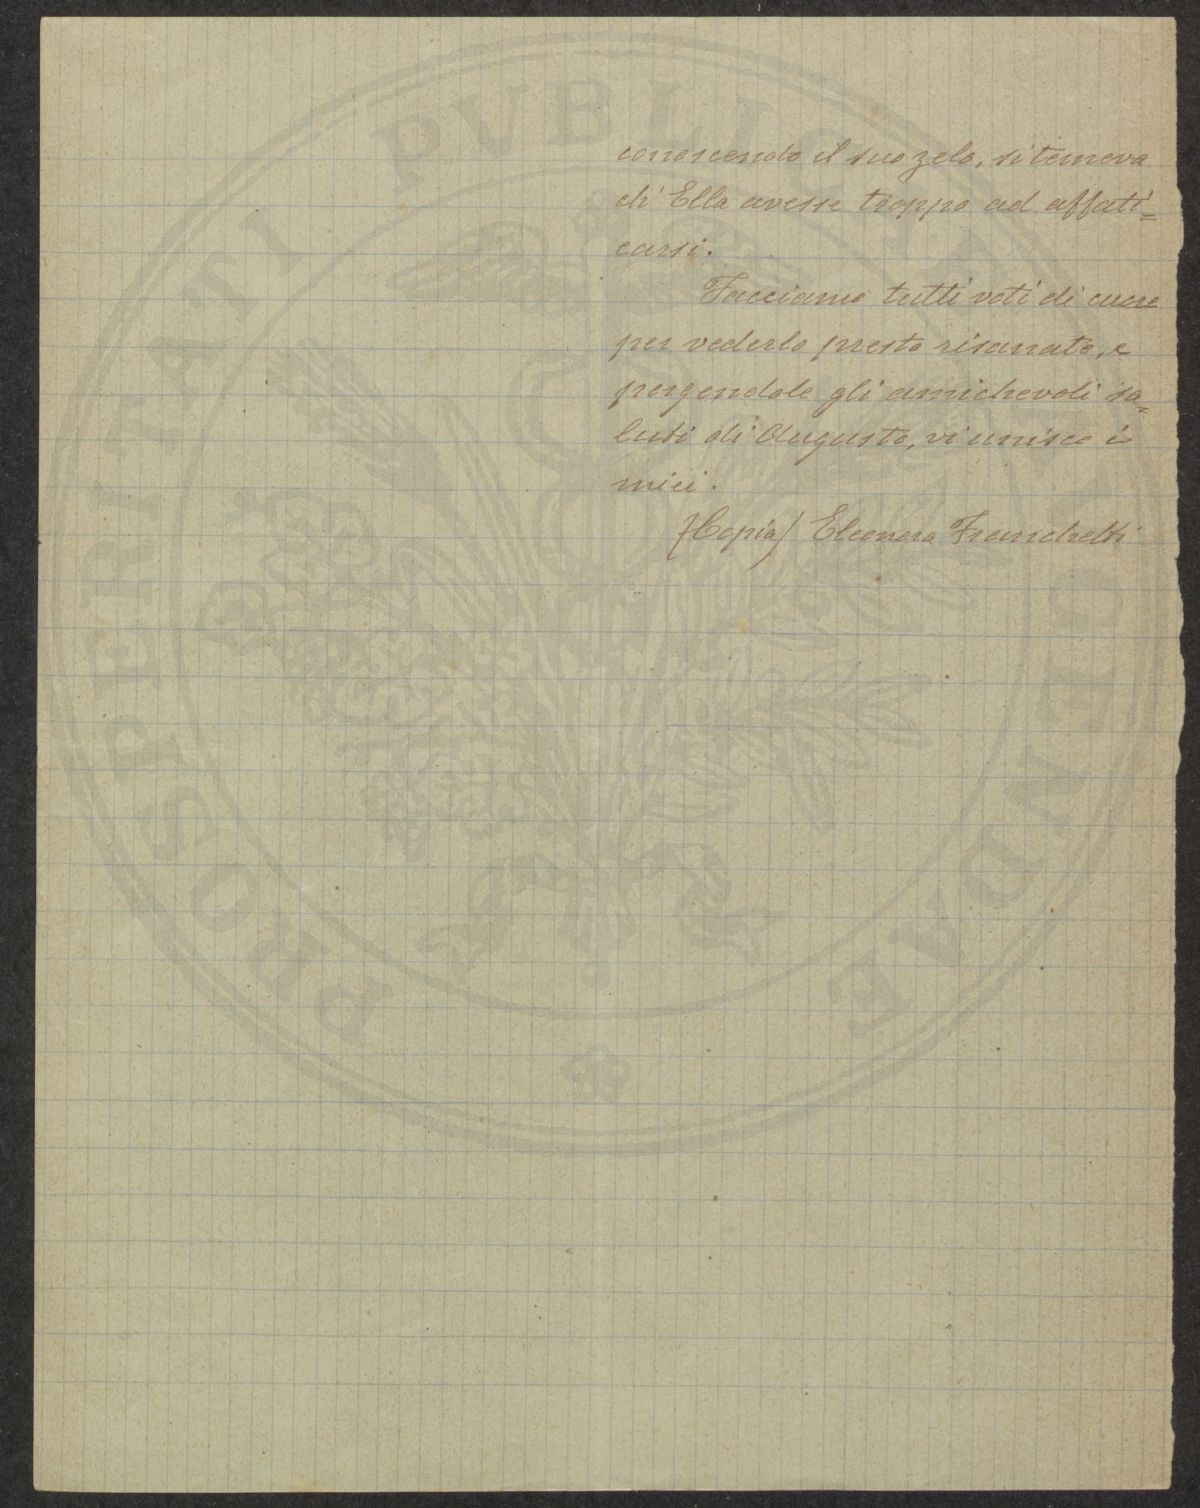 conoscendo il suo zelo, si temeva
ch' Ella avesse troppo ad affati=
carsi.
Facciamo tutti voti di cuore
per vederlo presto risanato, e
porgendole gli amichevoli sa=
luti di Augusto, vi unisco i
miei.
(Copia) Eleonora Franchetti
PROSPERITATI PVBLICAE AVGENDAE